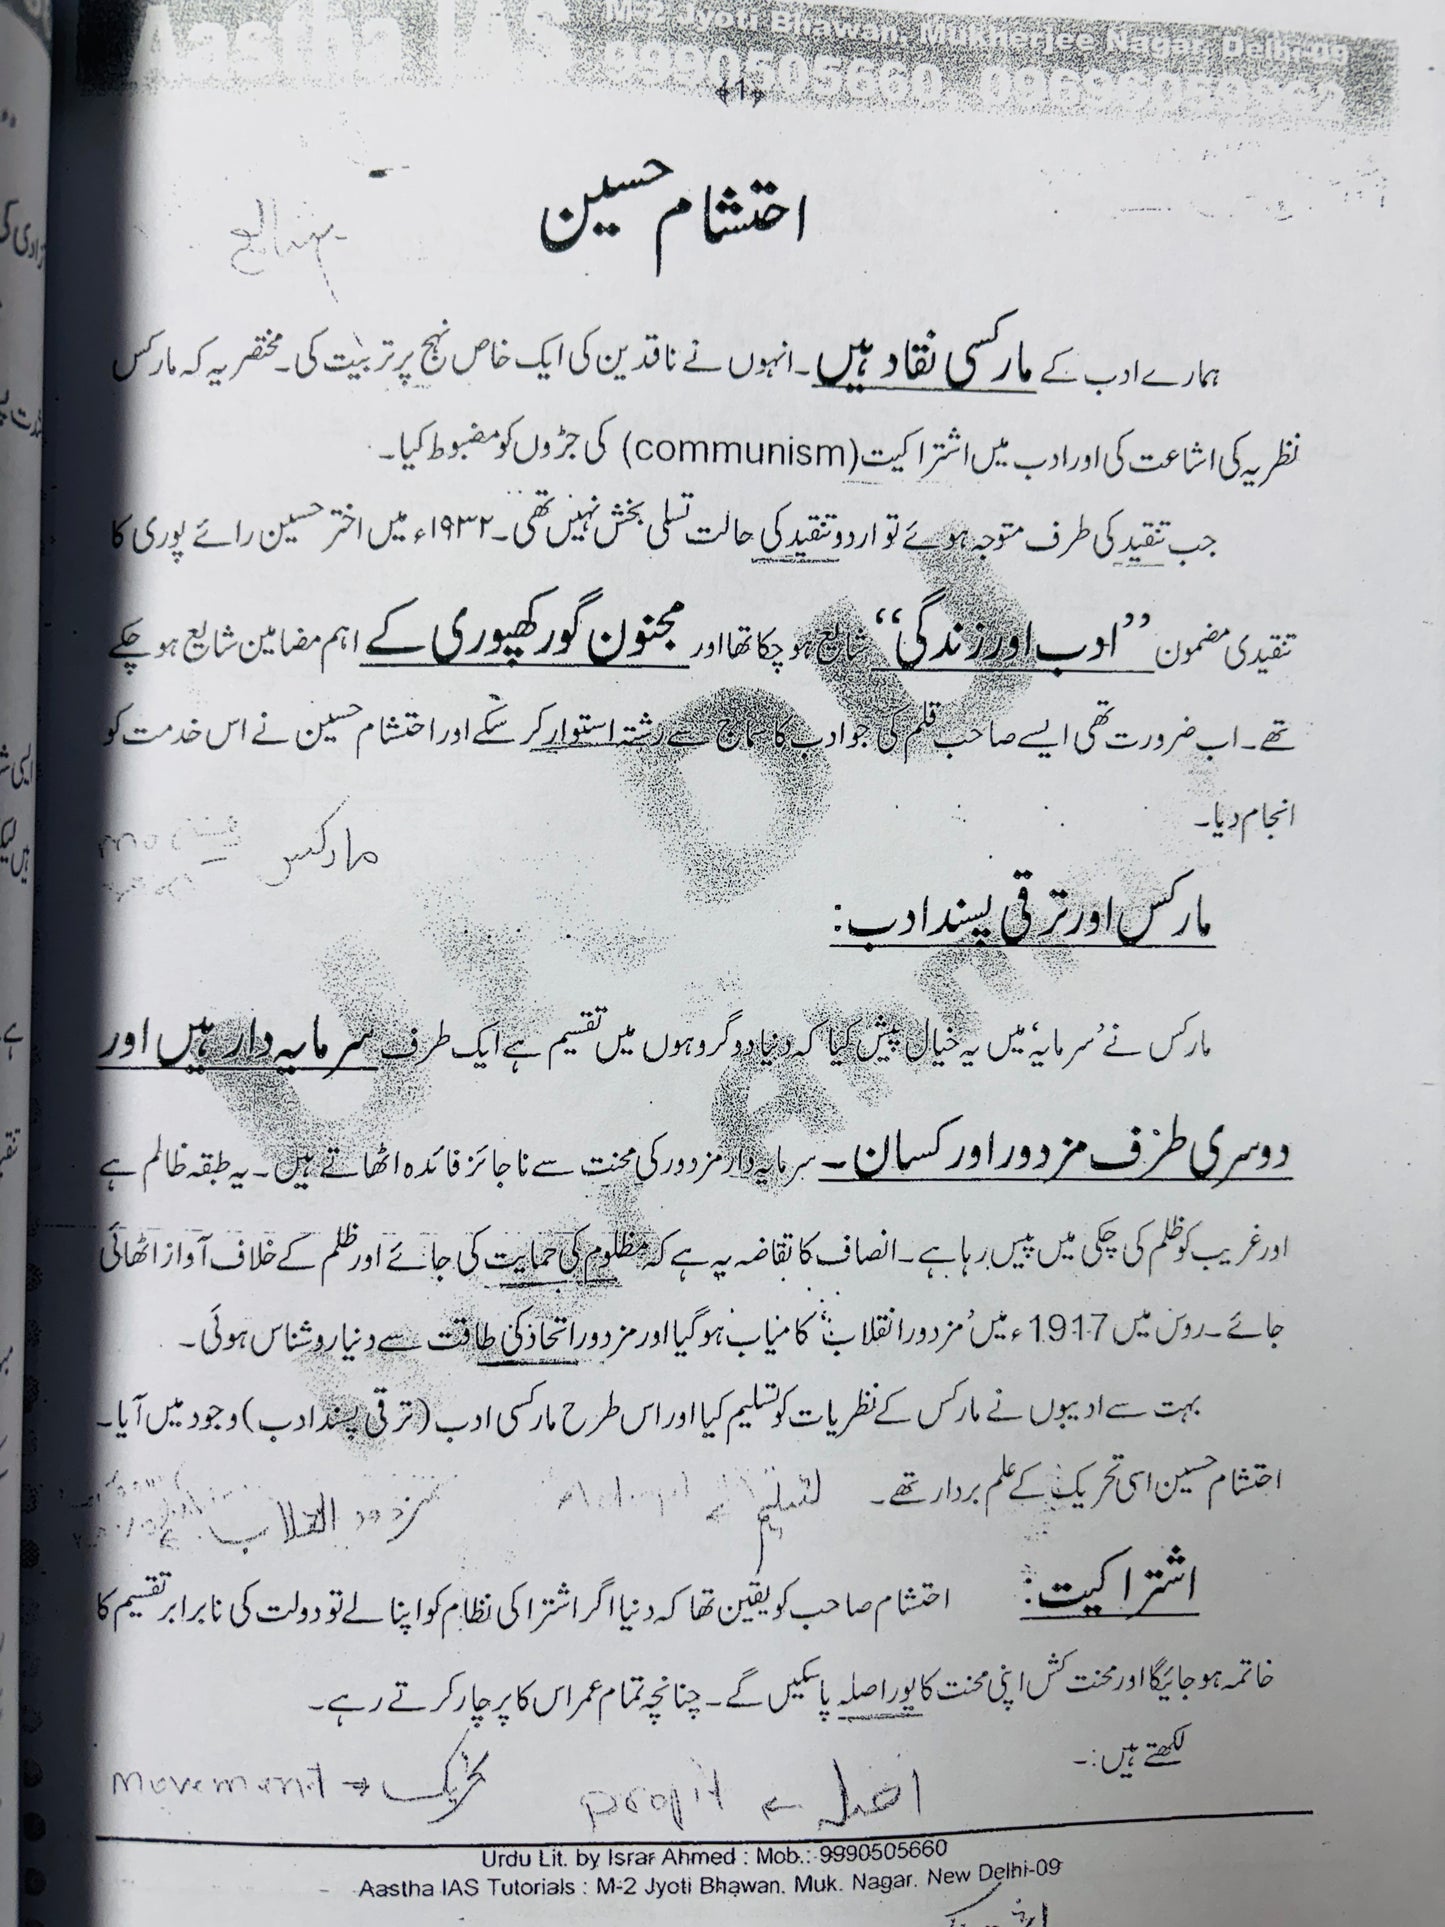 Aastha IAS
M-2 Jyoti Bhawan, Mukherjee Nagar, Delhi-09
9990505660,
﴿1﴾
احتشام حسین
ہمارے ادب کے مارکسی نقاد ہیں۔ انہوں نے ناقدین کی ایک خاص نہج پر تربیت کی۔ مختصر یہ کہ مارکس
نظریہ کی اشاعت کی اور ادب میں اشتراکیت (communism) کی جڑوں کو مضبوط کیا۔
جب تنقید کی طرف متوجہ ہوئے تو اردو تنقید کی حالت تسلی بخش نہیں تھی۔ ۱۹۳۲ء میں اختر حسین رائے پوری کا
تنقیدی مضمون ’’ادب اور زندگی‘‘ شایع ہو چکا تھا اور مجنون گورکھپوری کے اہم مضامین شایع ہو چکے
تھے۔ اب ضرورت تھی ایسے صاحب قلم کی جو ادب کا سماج سے رشتہ استوار کر سکے اور احتشام حسین نے اس خدمت کو
انجام دیا۔
مارکس
مارکس اور ترقی پسند ادب:
مارکس نے ’سرمایہ‘ میں یہ خیال پیش کیا کہ دنیا دو گروہوں میں تقسیم ہے ایک طرف سرمایہ دار ہیں اور
دوسری طرف مزدور اور کسان۔ سرمایہ دار مزدور کی محنت سے ناجائز فائدہ اٹھاتے ہیں۔ یہ طبقہ ظالم ہے
اور غریب کو ظلم کی چکی میں پیس رہا ہے۔ انصاف کا تقاضہ یہ ہے کہ مظلوم کی حمایت کی جائے اور ظلم کے خلاف آواز اٹھائی
جائے۔ روس میں 1917ء میں ’مزدور انقلاب‘ کامیاب ہو گیا اور مزدور اتحاد کی طاقت سے دنیا روشناس ہوئی۔
بہت سے ادیبوں نے مارکس کے نظریات کو تسلیم کیا اور اس طرح مارکسی ادب (ترقی پسند ادب) وجود میں آیا۔
احتشام حسین اسی تحریک کے علم بردار تھے۔
تسلیم
مزدور انقلاب
اشتراکیت: احتشام صاحب کو یقین تھا کہ دنیا اگر اشتراکی نظام کو اپنا لے تو دولت کی نابرابر تقسیم کا
خاتمہ ہو جائیگا اور محنت کش اپنی محنت کا پورا صلہ پا سکیں گے۔ چنانچہ تمام عمر اس کا پرچار کرتے رہے۔
لکھتے ہیں:۔
profit ←
movement → تحریک
Urdu Lit. by Israr Ahmed : Mob.: 9990505660
Aastha IAS Tutorials : M-2 Jyoti Bhawan. Muk. Nagar. New Delhi-09